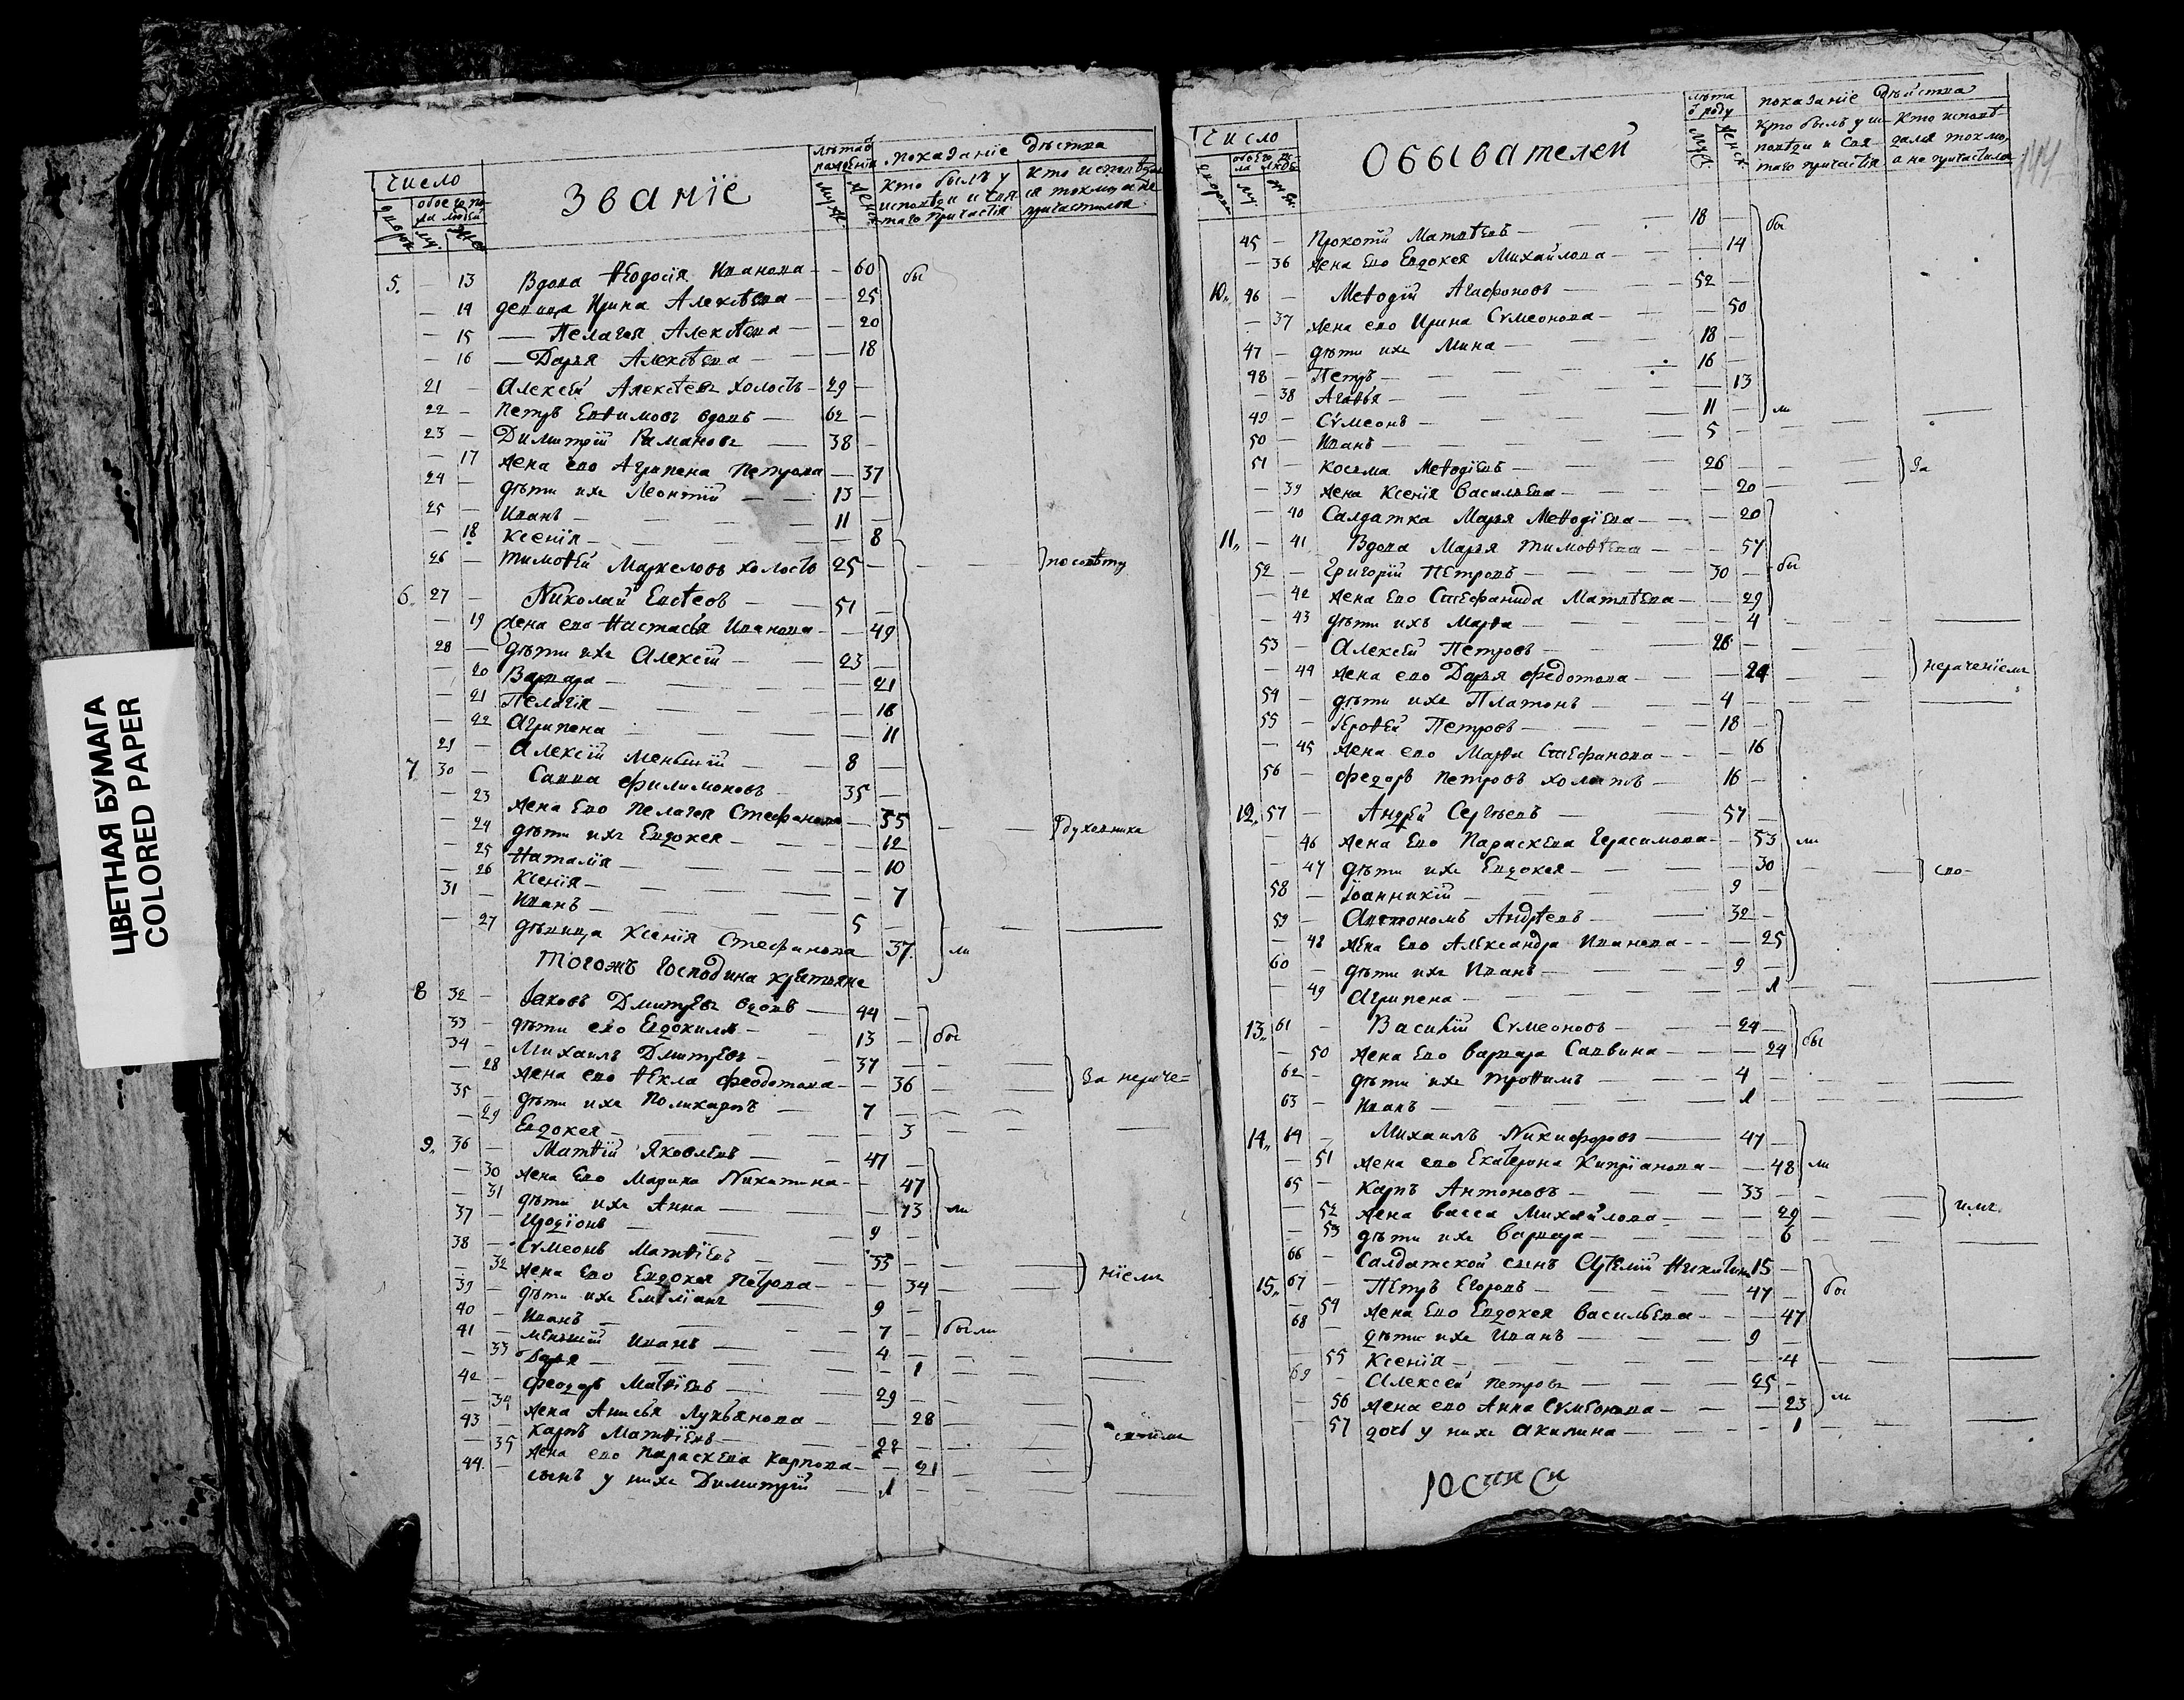 ЦВЕТНАЯ БУМАГА
COLORED PAPER
Число
Званіе
показаніе дѣства
5. — 13 Вдова Ѳеодосія Иванова — — 60 бы
— 14 девица Ирина Алексѣева — — 25
— 15 — Пелагея Алексѣева — — 20
— 16 — Дарья Алексѣева — — 18
21 — Алексей Алексѣевъ холостъ — 29 —
22 — Петръ Евѳимовъ вдовъ — 62 —
23 — Димитрій Рамановъ — 38 —
— 17 жена ево Агрипена Петрова — 37
24 — дѣти ихъ Леонтій — — 13 —
25 — Иванъ — — 11 —
— 18 Ксенія — — 8
26 — Тимоѳей Маркеловъ холостъ 25 — — — по совѣту
6. 27 — Николай Евсѣевъ — — 51 —
— 19 жена ево Настасья Иванова — — 49
28 — дѣти ихъ Алексій — — 23 —
— 20 Варвара — — 21
— 21 Пелагія — — 18
— 22 Агрипена — — 11
29 — Алексій меньшій — 8 —
7 30 — Савва Филимоновъ — 35 —
— 23 жена Ево Пелагея Стефанова — 35 — — духовника
— 24 дѣти ихъ Евдокея — — 12
— 25 Наталія — — 10
— 26 Ксенія — — 7
31 — Иванъ — — 5 —
— 27 дѣвица Ксенія Стефанова 37. ли
Тогожъ Господина крестьяне
8 32 — Іаковъ Дмитревъ вдовъ — 44 —
33 — дѣти ево Евдокимъ — 13 — бы
34 — Михаилъ Дмитревъ — 37 —
— 28 жена ево Ѳекла Феодотова — — 36 — — За нераче=
35 — дѣти ихъ Поликарпъ — 7 —
— 29 Евдокея — — 3
9. 36 — Матѳій Яковлевъ — — 47 —
— 30 жена Ево Марина Никитина — — 47
— 31 дѣти ихъ Анна — — 13 ли
37 — Иродіонъ — 9 —
38 — Сѵмеонъ Матѳіевъ — 35 —
— 32 жена Ево Евдокея Петрова — — 34 — — ніемъ
39 — дѣти ихъ Емеліанъ — 9 —
40 — Иванъ — — 7 — были
41 — меньшій Иванъ — 4 —
— 33 Дарья — — 1
42 — Феодоръ Матѳіевъ — 29 —
— 34 жена Анисья Лукьянова — — 28
43 — Карпъ Матѳіевъ — 22 —
— 35 жена ево Параскева Карпова — — 21
44. — сынъ у нихъ Димитрій — 1 —
Число
Обывателей
показаніе дѣйства
45 — Прокопій Матвѣевъ — — 18 — бы
— 36 жена Ево Евдокея Михайлова — — 14
10. 46 — Меѳодій Агафоновъ — — 52 —
— 37 жена ево Ирина Сѵмеонова — — 50
47 — дѣти ихъ Мина — — 18 —
48 — Петръ — — 16 —
— 38 Агаѳья — — 13
49 — Сѵмеонъ — — 11 — ли
50 — Иванъ — — 5 —
51 — Косьма Меѳодіевъ — — 26 — — — За
— 39 жена Ксенія Васильева — — 20
— 40 Салдатка Марья Меѳодіева — — 20
11. — 41 Вдова Марья Тимоѳѣева — — 57
52 — Григорій Петровъ — — 30 — бы
— 42 жена Ево Стефанида Матвѣева — — 29
— 43 дѣти ихъ Марѳа — — 4
53 — Алексей Петровъ — — 26 —
— 44 жена ево Дарья Федотова — — 24 нераченіемъ
54 — дѣти ихъ Платонъ — — 4 —
55 — Іероѳей Петровъ — — 18 —
— 45 жена ево Марѳа Стефанова — — 16
56 — Федоръ Петровъ холостъ — 16 —
12. 57 — Андрей Сергѣевъ — 57 —
— 46 жена Ево Параскева Герасимова — — 53 ли
— 47 дѣти ихъ Евдокея — — 30 — — сво-
58 — Іоанникій — — 9 —
59 — Автономъ Андрѣевъ — — 32 —
— 48 жена Ево Александра Иванова — — 25
60 — дѣти ихъ Иванъ — — 9 —
— 49 Агрипена — — 1
13. 61 — Василій Сѵмеоновъ — — 24 — бы
— 50 жена Ево Варвара Саввина — — 24
62 — дѣти ихъ Трофимъ — — 4 —
63 — Иванъ — — 1 —
14. 64 — Михаилъ Никифоровъ — 47 —
— 51 жена ево Екатерина Кипріанова — — 48 ли
65 — Карпъ Антоновъ — — 33 —
— 52 жена Васса Михайлова — — 29 — — имъ
— 53 дѣти ихъ Варвара — — 6
66 — Салдатской сынъ Никитинъ 15 —
15. 67 — Петръ Егоровъ — — 47 — бы
— 54 жена Ево Евдокея Васильева — — 47
68 — дѣти ихъ Иванъ — — 9 —
— 55 Ксенія — — 4
69 — Алексей Петровъ — — 25 —
— 56 жена ево Анна Сѵмеонова — — 23 ли
— 57 дочь у нихъ Акилина — — 1